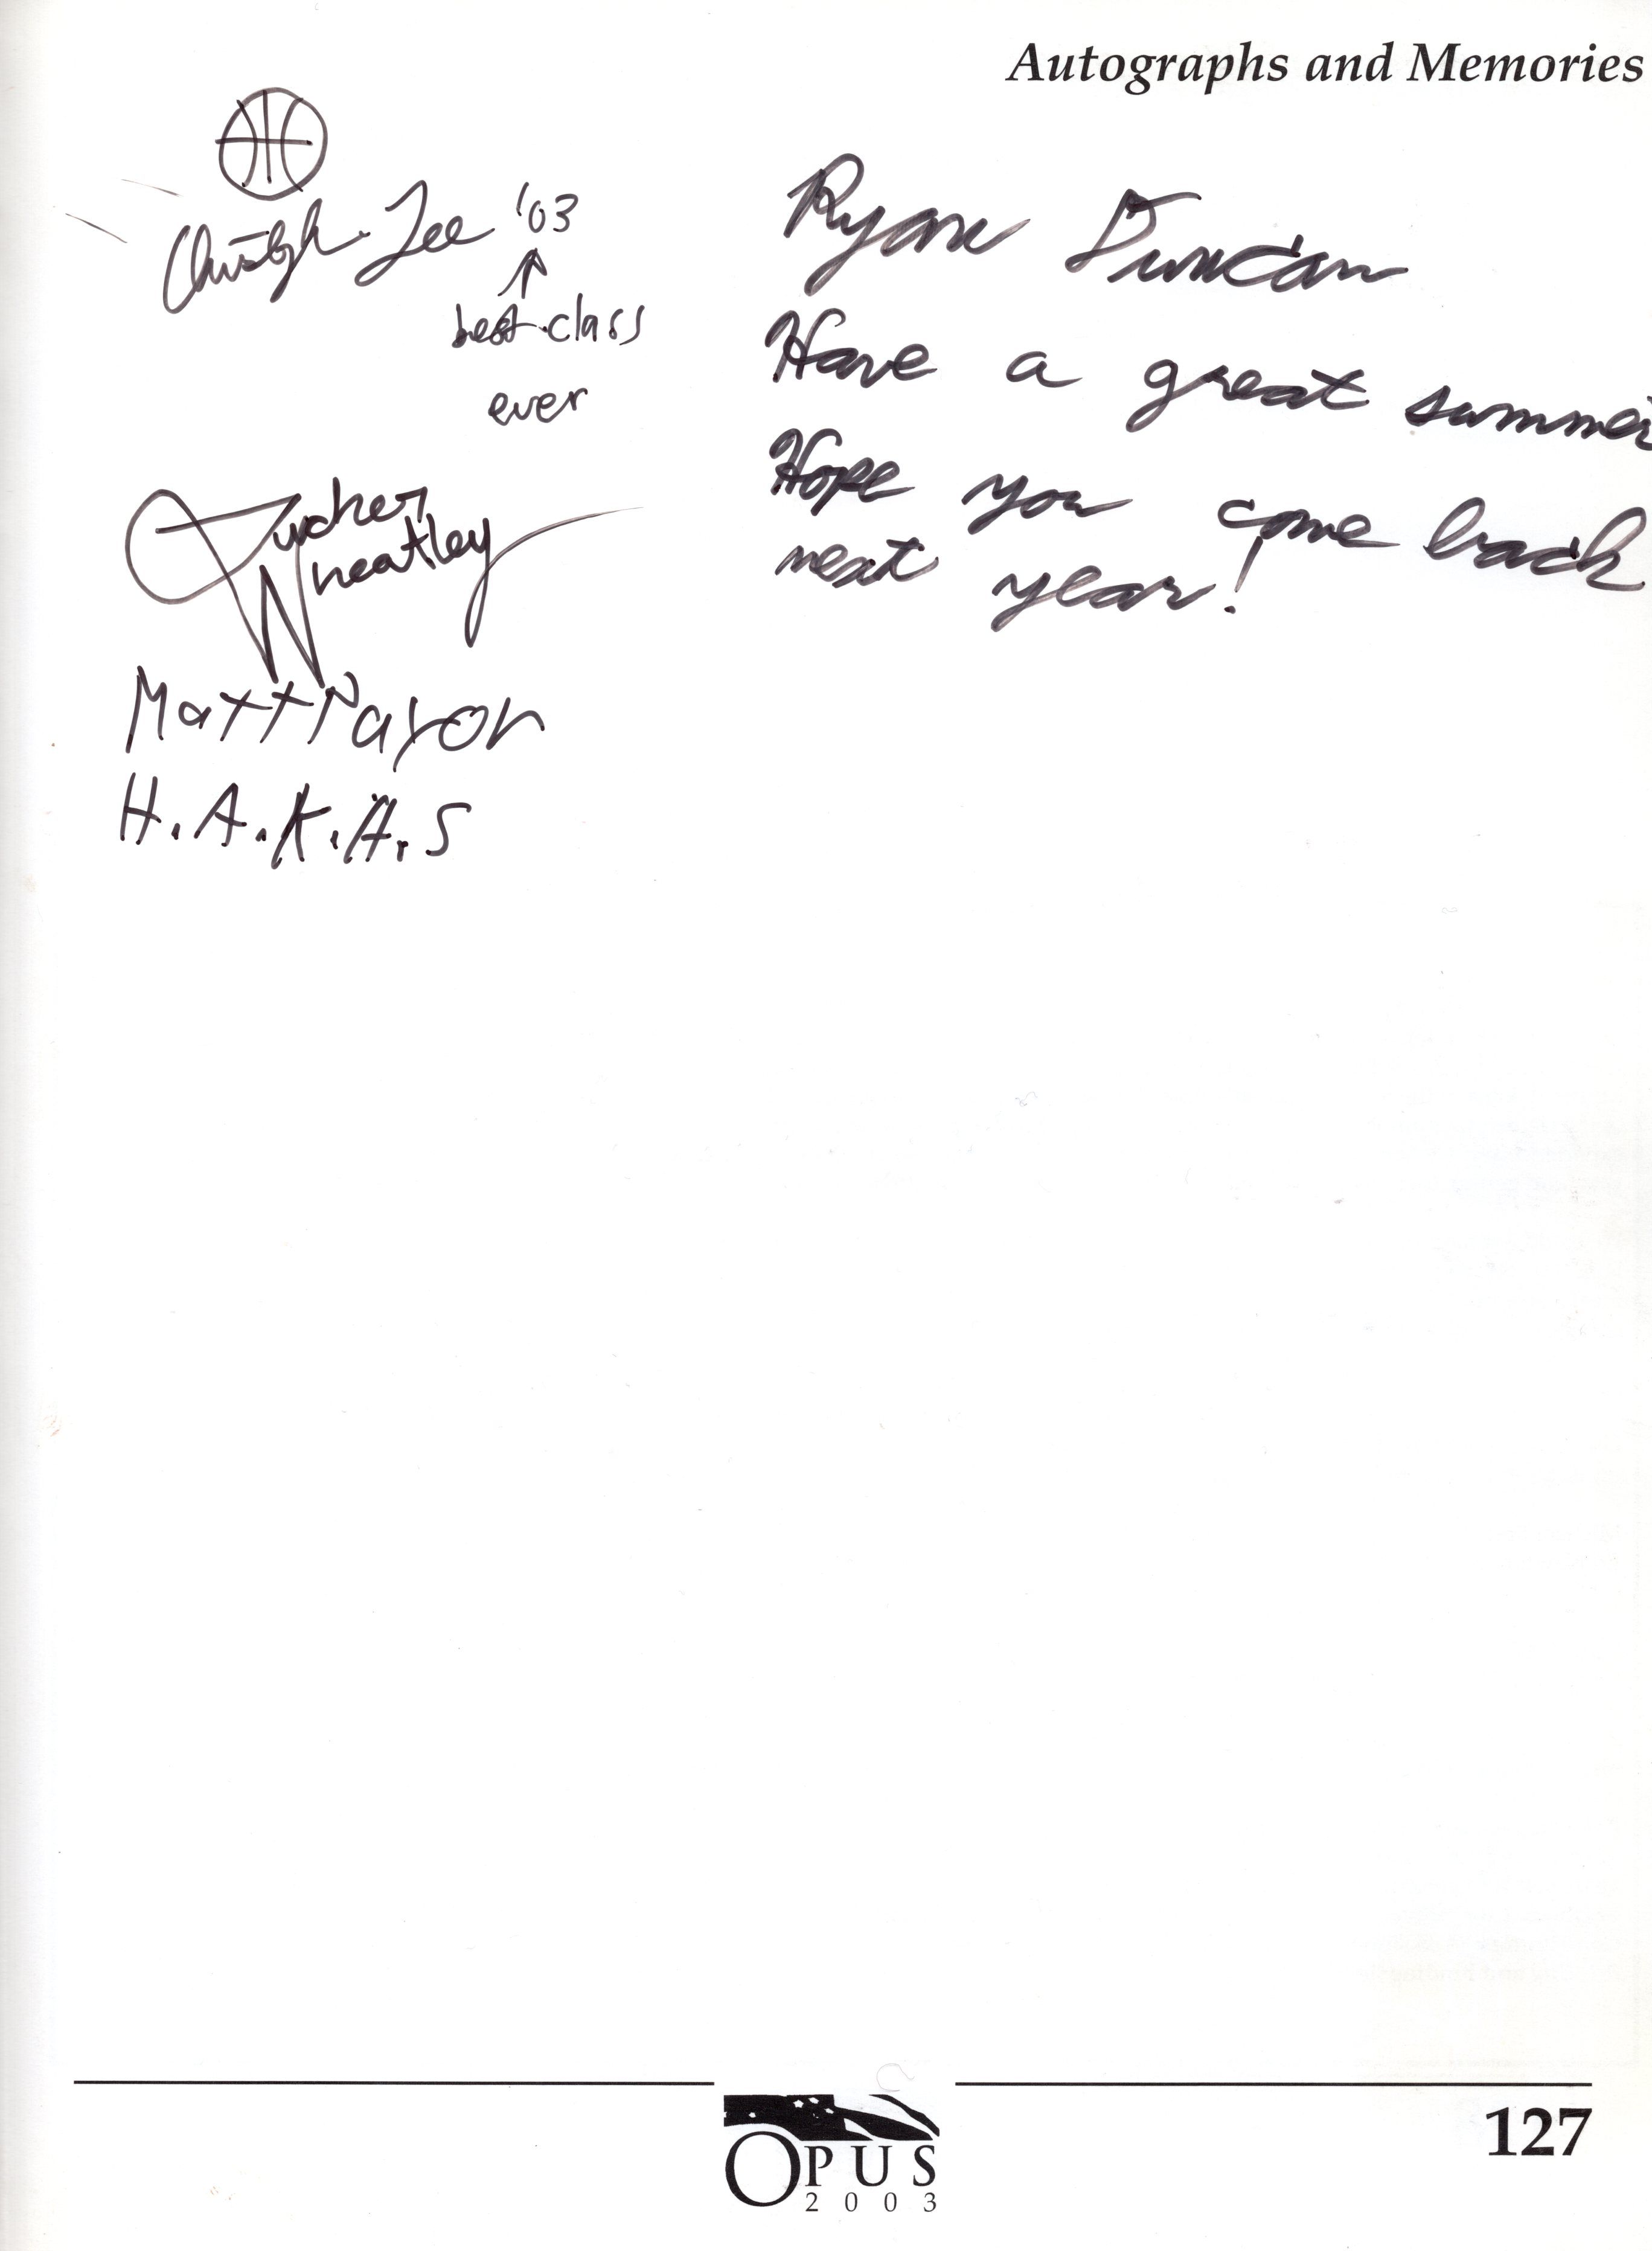 Autographs and Memories
Lee '03
best class
ever
Tucker
Wheatley
Matt Payor
H.A.K.A.S
Ryan Duncan
Have a great summer
Hope you come back
next year!
OPUS
2003
127